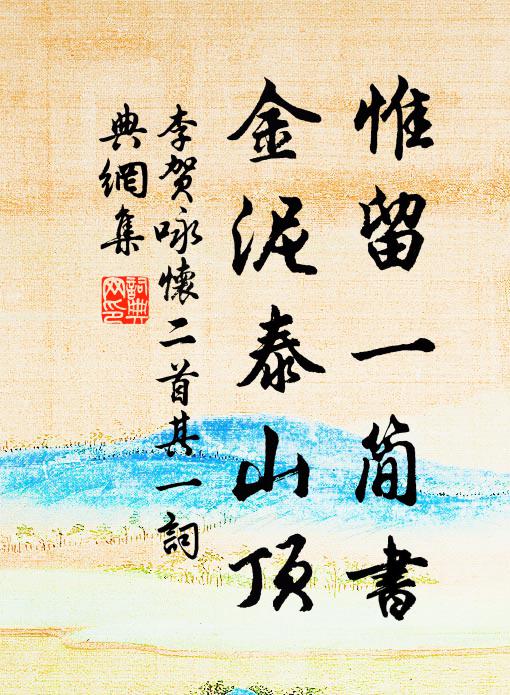 惟留一简書
金泥泰山顶
李贺咏懷二首其一詞
典網集
詞典
网印